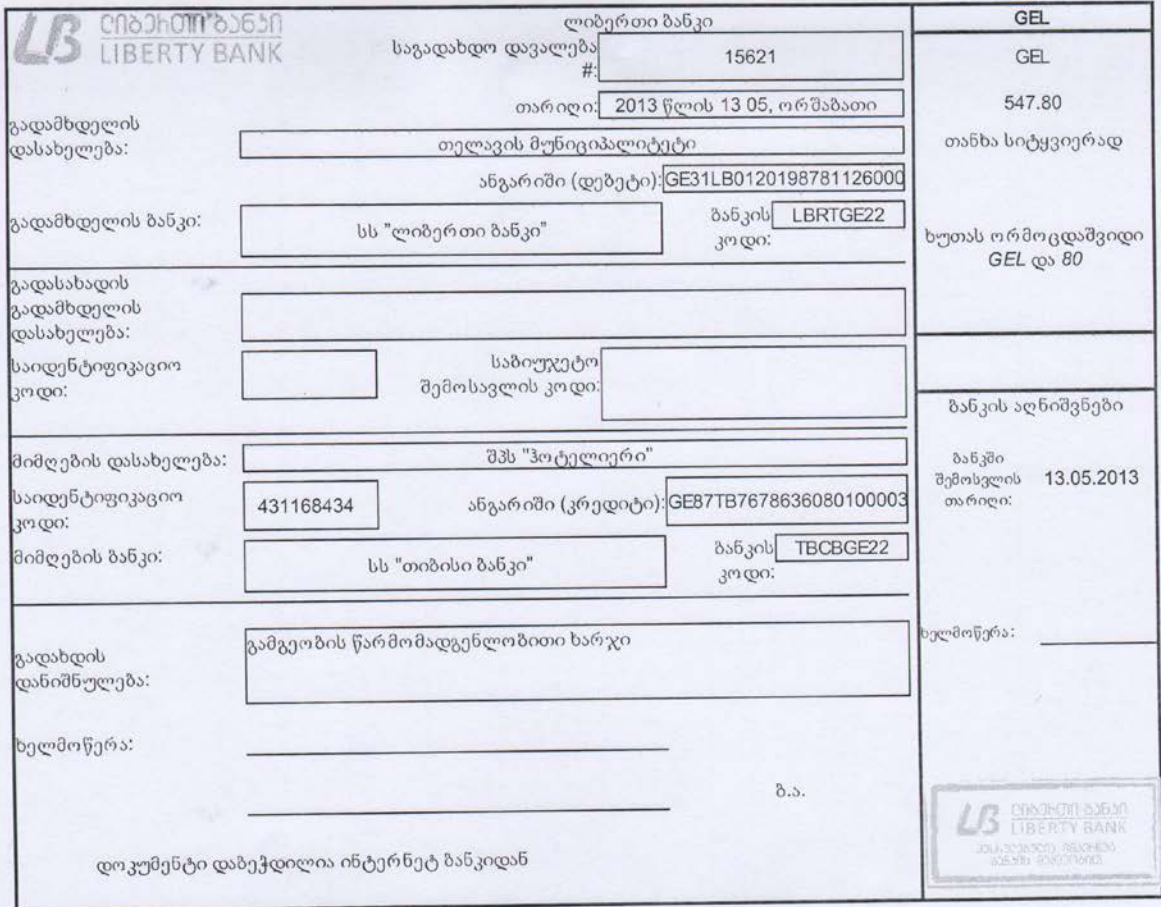 ლიბერთი ბანკი
LIBERTY BANK
ლიბერთი ბანკი
საგადახდო დავალება
#:
15621
თარიღი:
2013 წლის 13 05, ორშაბათი
გადამხდელის
დასახელება:
თელავის მუნიციპალიტეტი
ანგარიში (დებეტი):
GE31LB0120198781126000
გადამხდელის ბანკი:
სს "ლიბერთი ბანკი"
ბანკის
კოდი:
LBRTGE22
გადასახადის
გადამხდელის
დასახელება:
საიდენტიფიკაციო
კოდი:
საბიუჯეტო
შემოსავლის კოდი:
მიმღების დასახელება:
შპს "ჰოტელიერი"
საიდენტიფიკაციო
კოდი:
431168434
ანგარიში (კრედიტი):
GE87TB7678636080100003
მიმღების ბანკი:
სს "თიბისი ბანკი"
ბანკის
კოდი:
TBCBGE22
გადახდის
დანიშნულება:
გამგეობის წარმომადგენლობითი ხარჯი
ხელმოწერა:
ბ.ა.
დოკუმენტი დაბეჭდილია ინტერნეტ ბანკიდან
GEL
GEL
547.80
თანხა სიტყვიერად
ხუთას ორმოცდაშვიდი
GEL და 80
ბანკის აღნიშვნები
ბანკში
შემოსვლის
თარიღი:
13.05.2013
ხელმოწერა:
ლიბერთი ბანკი
LIBERTY BANK